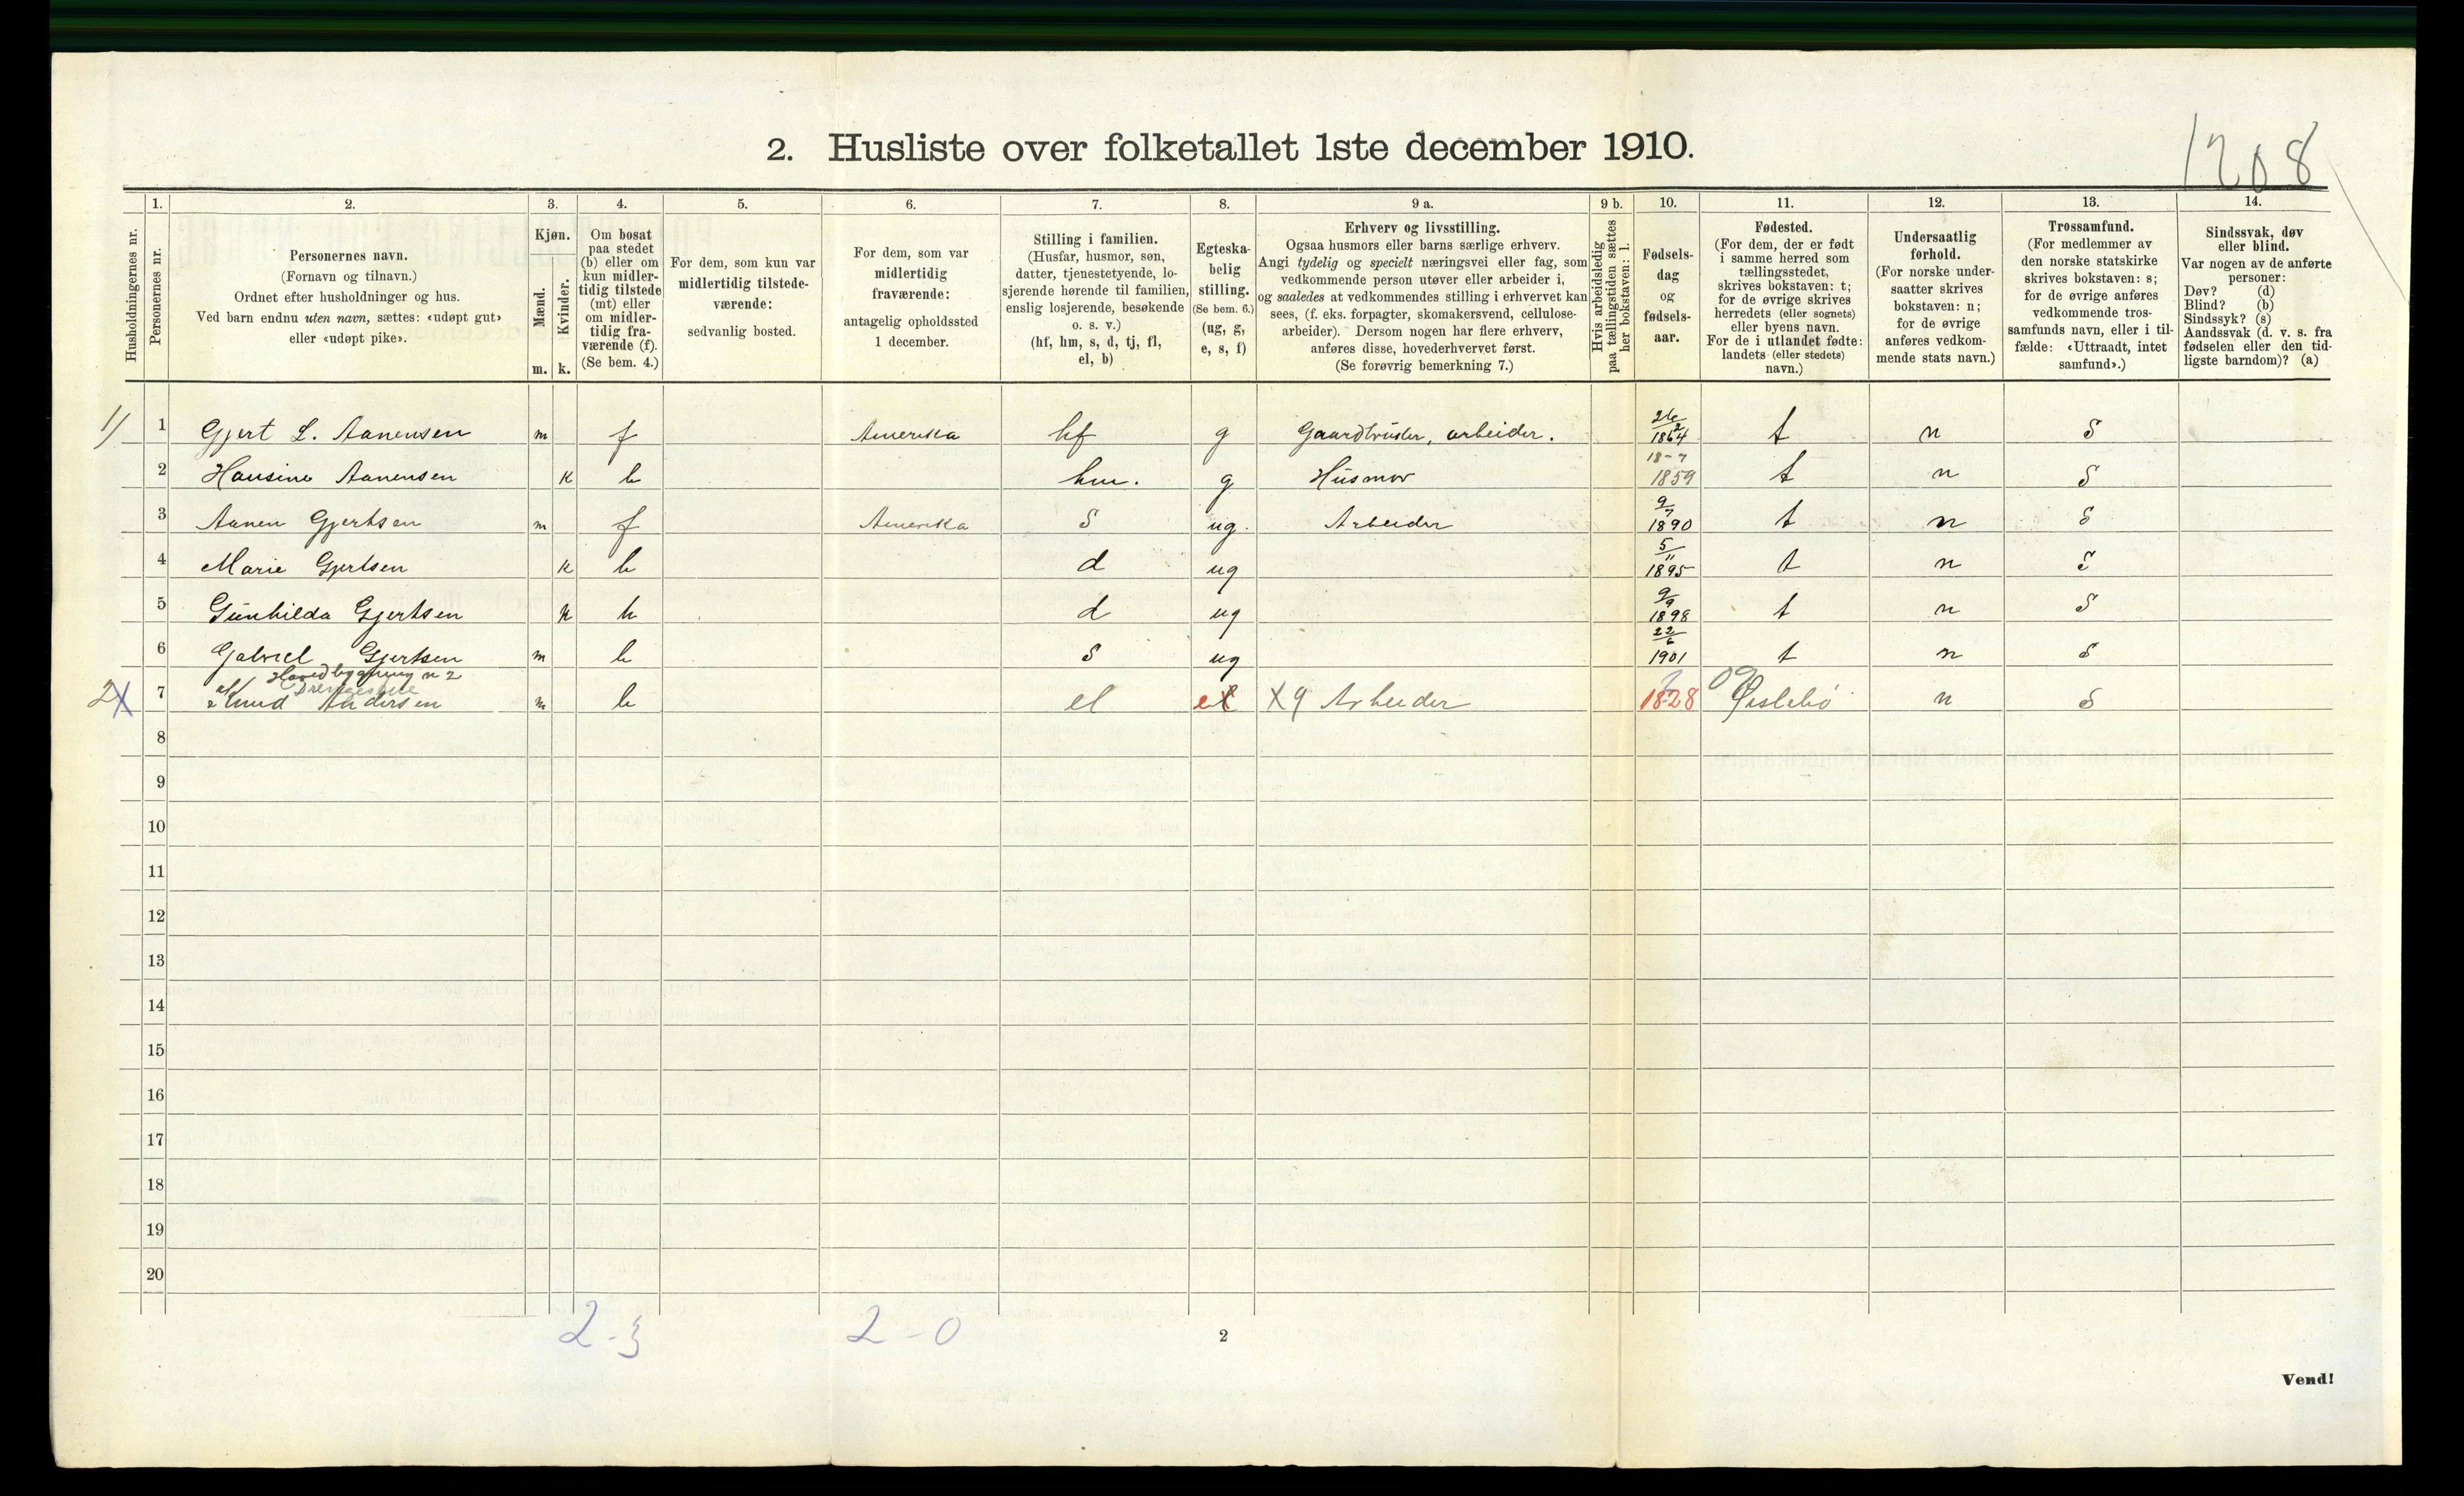 2. Husliste over folketallet 1ste december 1910.
1208
Husholdningernes nr.
1.
Personernes nr.
2.
Personernes navn.
(Fornavn og tilnavn.)
Ordnet efter husholdninger og hus.
Ved barn endnu uten navn, sættes: «udøpt gut»
eller «udøpt pike».
3.
Kjøn.
Mænd.
Kvinder.
m. k.
4.
Om bosat
paa stedet
(b) eller om
kun midler-
tidig tilstede
(mt) eller
om midler-
tidig fra-
værende (f).
(Se bem. 4.)
5.
For dem, som kun var
midlertidig tilstede-
værende:
sedvanlig bosted.
6.
For dem, som var
midlertidig
fraværende:
antagelig opholdssted
1 december.
7.
Stilling i familien.
(Husfar, husmor, søn,
datter, tjenestetyende, lo-
sjerende hørende til familien,
enslig losjerende, besøkende
o. s. v.)
(hf, hm, s, d, tj, fl,
el, b)
8.
Egteska-
belig
stilling.
(Se bem. 6.)
(ug, g,
e, s, f)
9 a.
Erhverv og livsstilling.
Ogsaa husmors eller barns særlige erhverv.
Angi tydelig og specielt næringsvei eller fag, som
vedkommende person utøver eller arbeider i,
og saaledes at vedkommendes stilling i erhvervet kan
sees, (f. eks. forpagter, skomakersvend, cellulose-
arbeider). Dersom nogen har flere erhverv,
anføres disse, hovederhvervet først.
(Se forøvrig bemerkning 7.)
9 b.
Hvis arbeidsledig
paa tællingstiden sættes
her bokstaven: l.
10.
Fødsels-
dag
og
fødsels-
aar.
11.
Fødested.
(For dem, der er født
i samme herred som
tællingsstedet,
skrives bokstaven: t;
for de øvrige skrives
herredets (eller sognets)
eller byens navn.
For de i utlandet fødte:
landets (eller stedets)
navn.)
12.
Undersaatlig
forhold.
(For norske under-
saatter skrives
bokstaven: n;
for de øvrige
anføres vedkom-
mende stats navn.)
13.
Trossamfund.
(For medlemmer av
den norske statskirke
skrives bokstaven: s;
for de øvrige anføres
vedkommende tros-
samfunds navn, eller i til-
fælde: «Uttraadt, intet
samfund».)
14.
Sindssvak, døv
eller blind.
Var nogen av de anførte
personer:
Døv? (d)
Blind? (b)
Sindssyk? (s)
Aandssvak (d. v. s. fra
fødselen eller den tid-
ligste barndom)? (a)
1) 1 Gjert L. Aanensen m f Amerika hf g Gaardbruker, arbeider. 26/2 1864 t n S
2 Hansine Aanensen k b hm. g Husmor 18-7 1859 t n S
3 Aanen Gjertsen m f Amerika S ug. Arbeider 9/7 1890 t n S
4 Marie Gjertsen k b d ug 5/11 1895 t n S
5 Gunhilda Gjertsen k b d ug 9/9 1898 t n S
6 Gabriel Gjertsen m b S ug 22/6 1901 t n S
Hovedbygning n 2
2X 7 Knud Andersen m b el e X 9 Arbeider 1828 09 Øislebø n S
8
9
10
11
12
13
14
15
16
17
18
19
20
2-3 2-0
2
Vend!